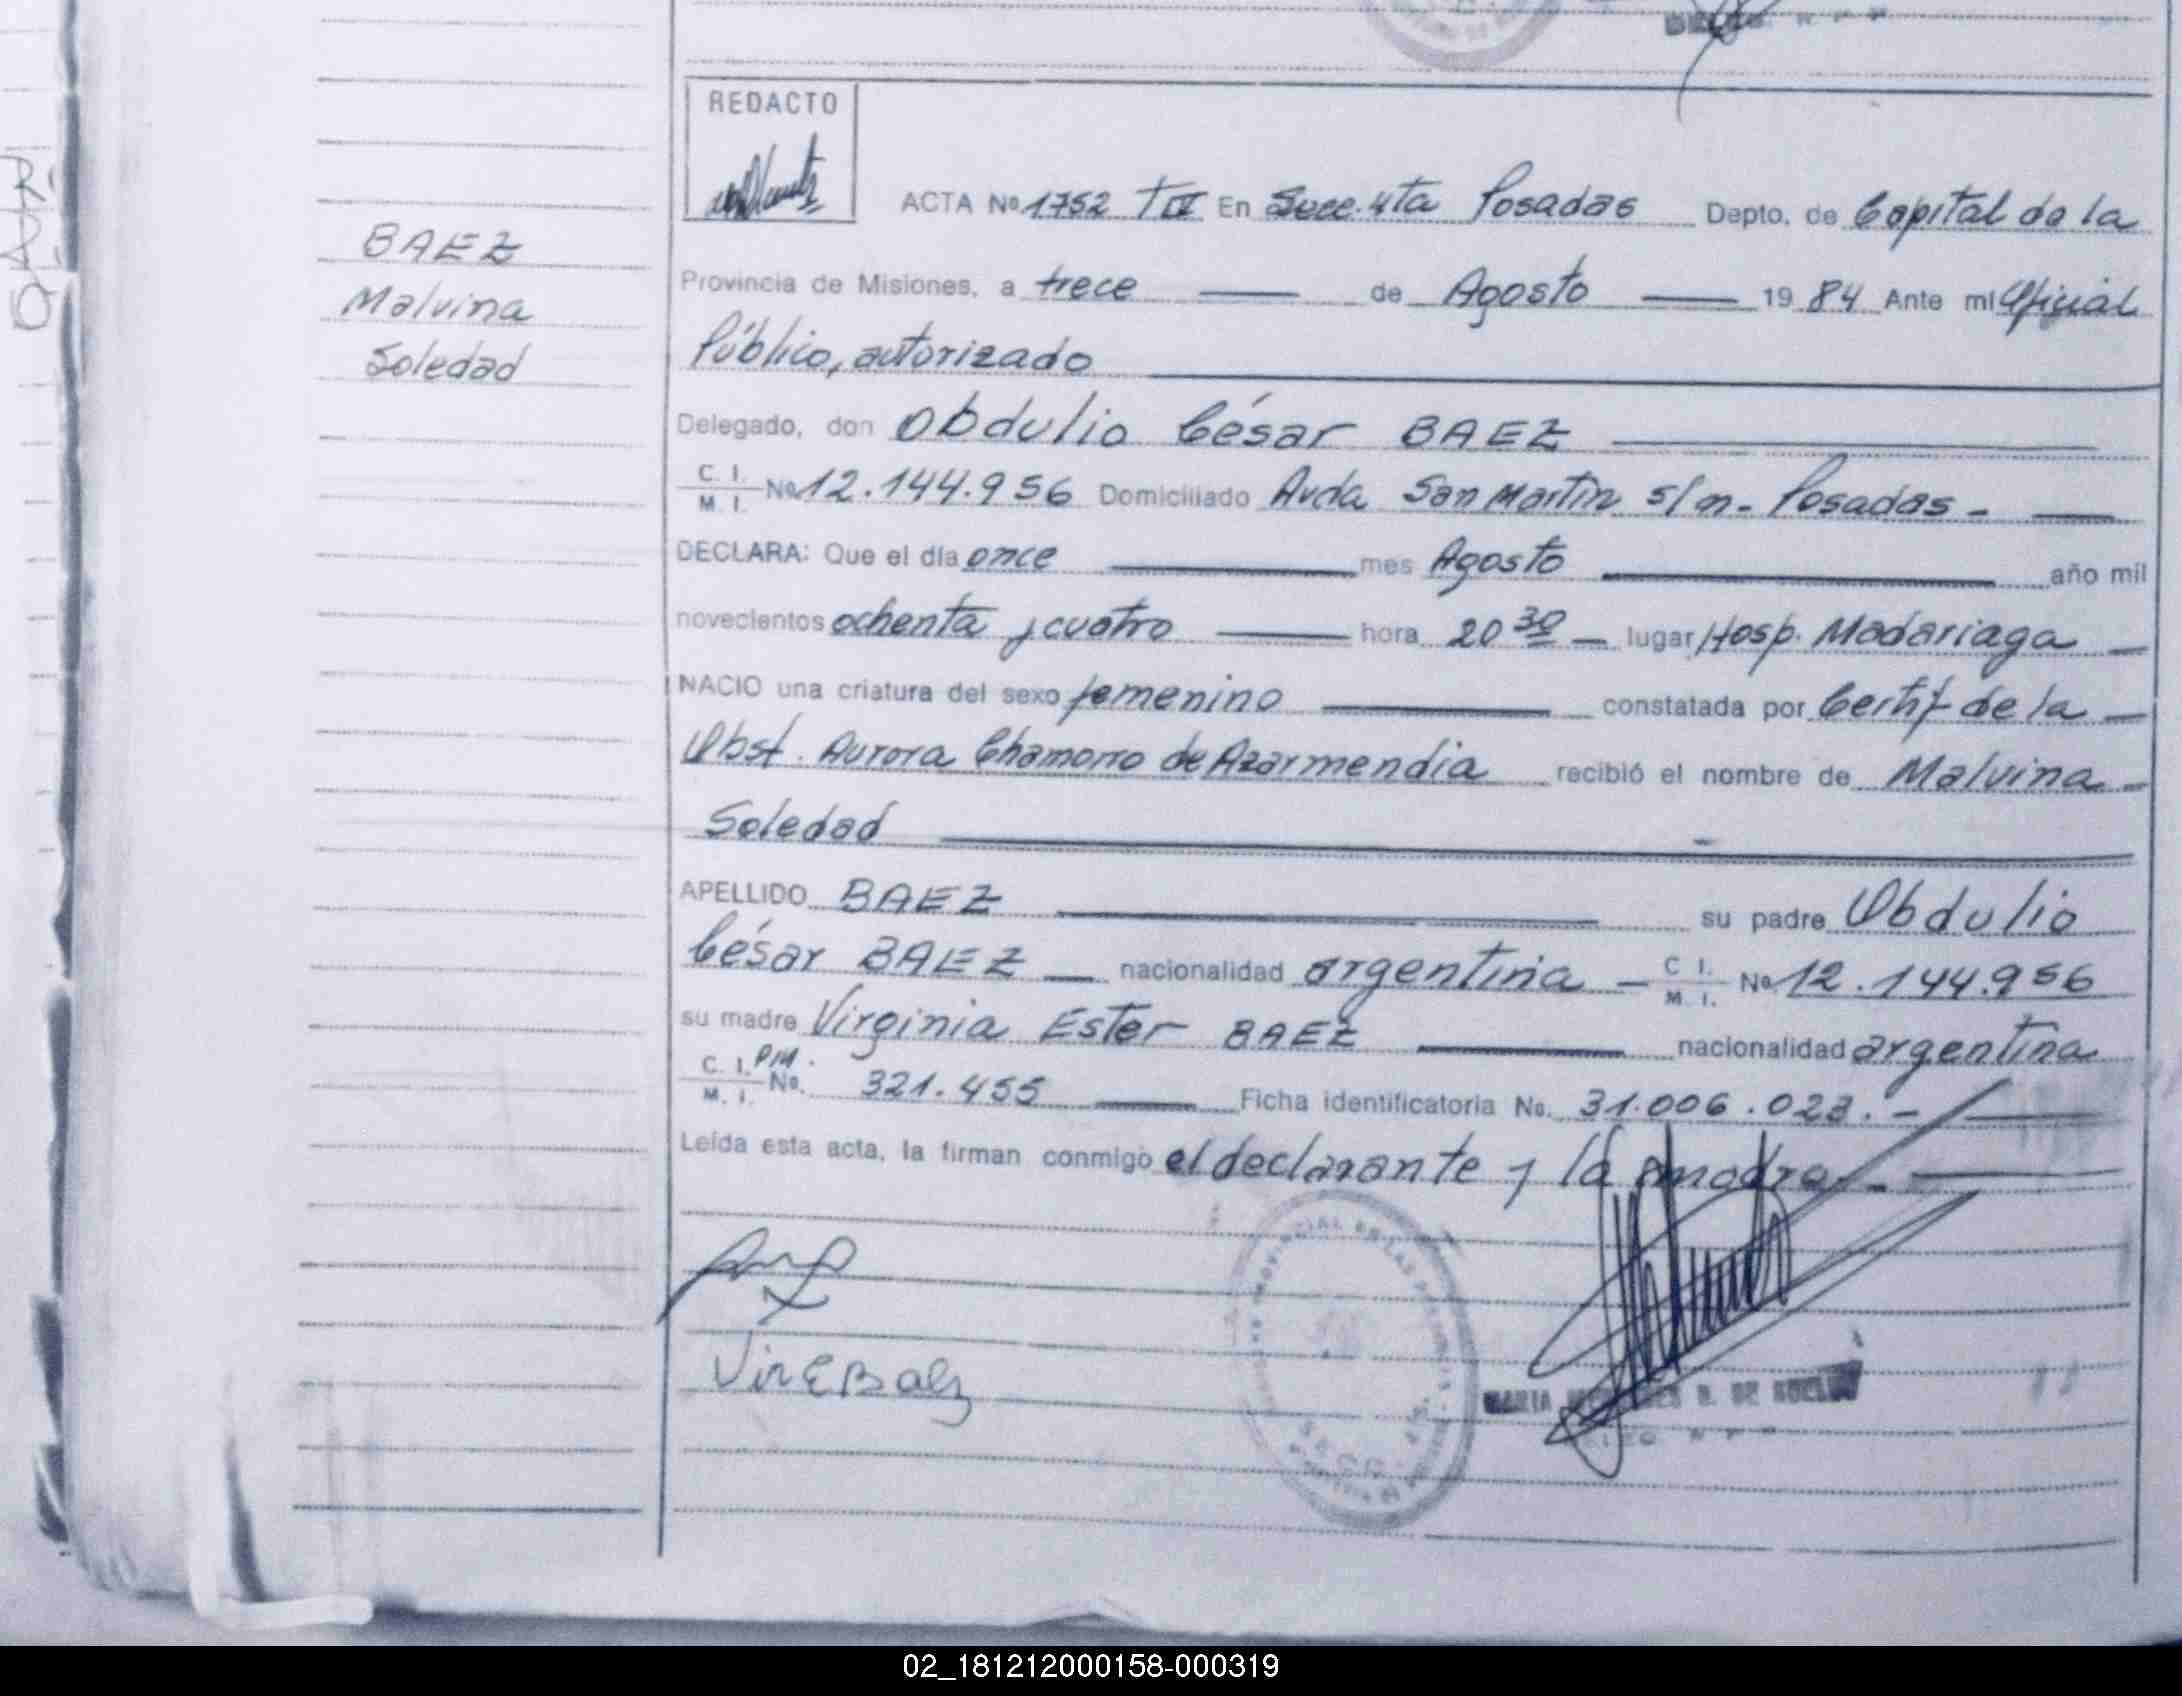 BAEZ
Malvina
Soledad
REDACTO
ACTA Nº 1752 TIV En Secc. 4ta Posadas Depto. de Capital de la
Provincia de Misiones, a trece de Agosto 19 84 Ante mi Oficial
Público, autorizado
Delegado, don Obdulio César BAEZ
C. I. M. I. Nº 12.144.956 Domiciliado Avda San Martín s/n - Posadas -
DECLARA: Que el día once mes Agosto año mil
novecientos ochenta y cuatro hora 20 30 lugar Hosp. Madariaga
NACIO una criatura del sexo femenino constatada por Certif de la
Obst. Aurora Chamorro de Azarmendia recibió el nombre de Malvina
Soledad
APELLIDO BAEZ su padre Obdulio
César BAEZ nacionalidad argentina C. I. M. I. Nº 12.144.956
su madre Virginia Ester BAEZ nacionalidad argentina
C. I. M. I. PM. No. 321.455 Ficha identificatoria No. 31.006.023.-
Leída esta acta, la firman conmigo el declarante y la madre.-
Vir E Baez
MARIA DE
02_181212000158-000319